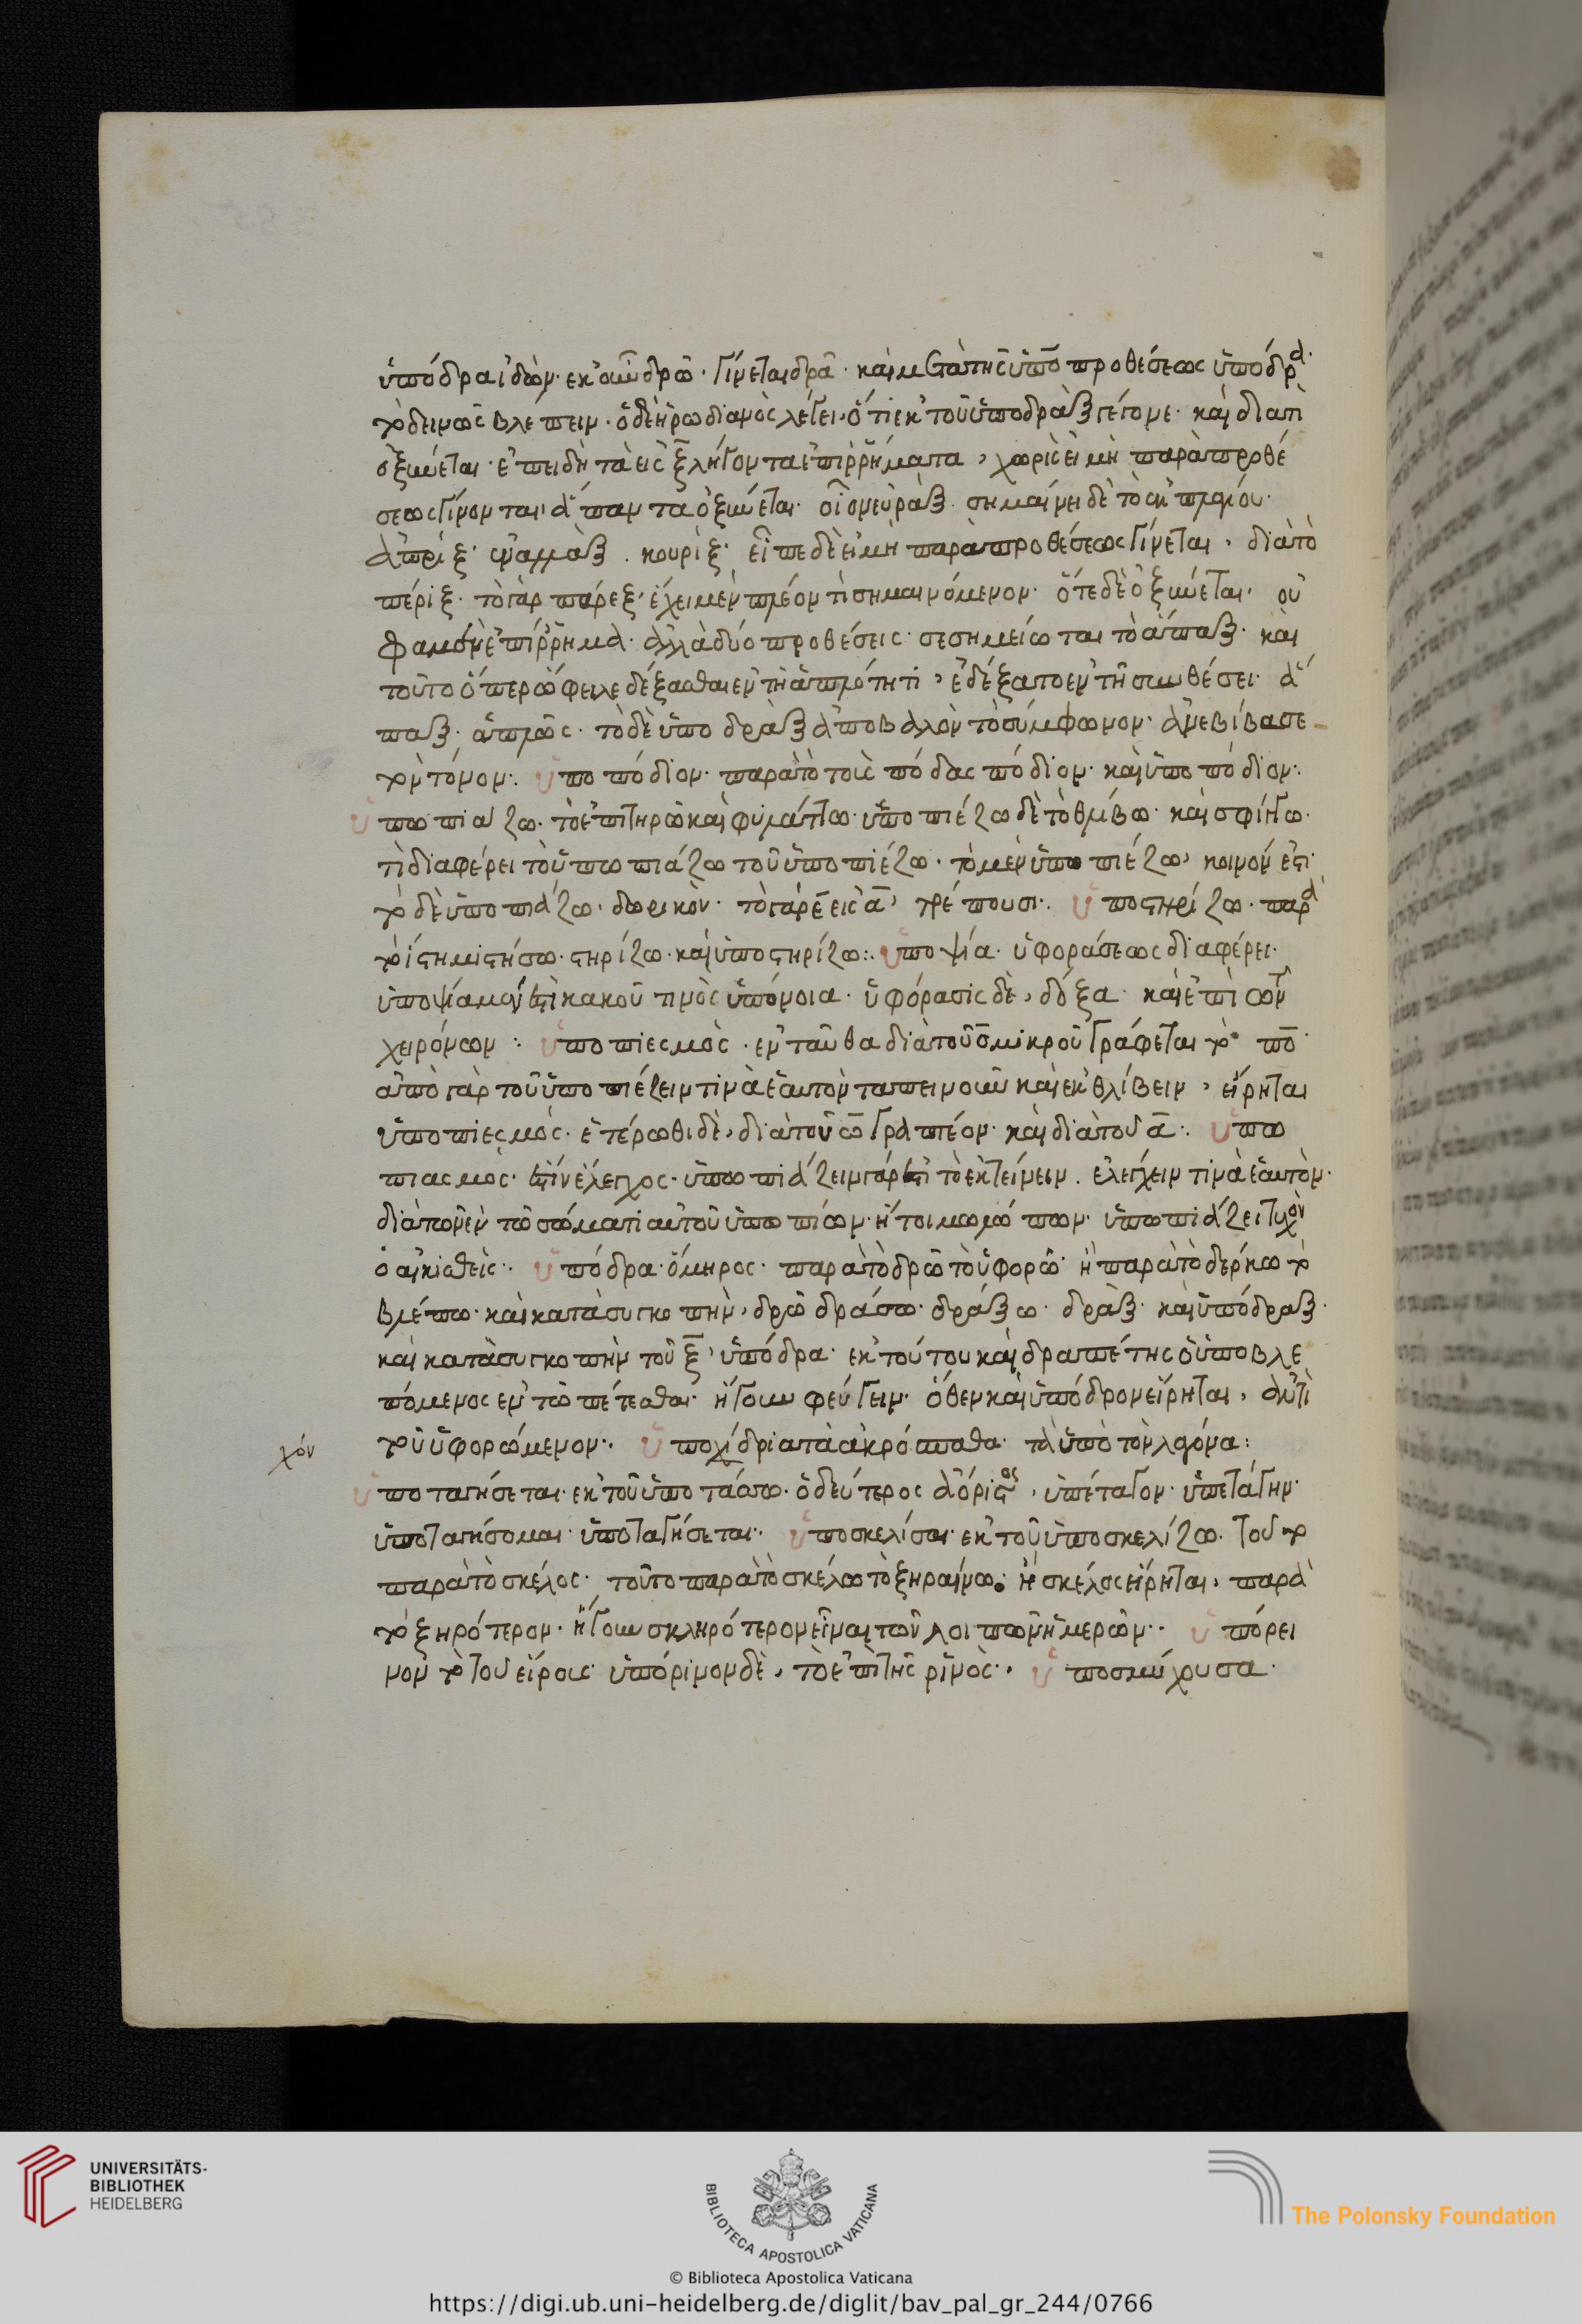 ὑπόδρα ἰδών· ἐκ οὖν δρῶ· γίνεται δρᾶ· καὶ μετὰ τῆς ὑπὸ προθέσεως ὑπόδρα·
τὸ δεινῶς βλέπειν· ὁ δὲ ἡρωδιανὸς λέγει· ὅτι ἐκ τοῦ ὑποδρὰξ γέγονε· καὶ διατὶ
ὀξύνεται· ἐπειδὴ τὰ εἰς ξ λήγοντα ἐπιρρήματα, χωρὶς εἰ μὴ παρὰ προθέ
σεως γίνονται, ἅπαντα ὀξύνεται· οἷον εὐράξ· σημαίνει δὲ τὸ ἐκ πλαγίου·
ἀπρίξ· ψαλλάξ· κουρίξ· εἶπε δὲ εἰ μὴ παρὰ προθέσεως γίνεται, διὰ τὸ
πέριξ· τὸ γὰρ πάρεξ, ἔχει μὲν πλέον τι σημαινόμενον· ὅτε δὲ ὀξύνεται, οὐ
φαμὲν ἐπίρρημα· ἀλλὰ δύο προθέσεις· σεσημείωται τὸ ἅπαξ· καὶ
τοῦτο ὅπερ ὤφειλε δέξασθαι ἐν τῇ ἁπλότητι, ἐδέξατο ἐν τῇ συνθέσει· ἅ
παξ· ἁπλῶς· τὸ δὲ ὑποδρὰξ ἀποβαλὸν τὸ σύμφωνον· ἀνεβίβασε
τὸν τόνον:· ὑποπόδιον· παρὰ τὸ τοὺς πόδας πόδιον· καὶ ὑποπόδιον:·
ὑπωπιάζω· τὸ ἐπιτηρῶ καὶ φυλάττω· ὑποπιέζω δὲ τὸ θλίβω· καὶ σφίγγω·
τί διαφέρει τὸ ὑπωπιάζω τοῦ ὑποπιέζω· τὸ μὲν ὑπωπιέζω, κοινόν ἐστι·
τὸ δὲ ὑποπιάζω· δωρικόν· τὸ γὰρ ε εἰς α, τρέπουσι·. ὑποστηρίζω· παρὰ
τὸ ἵστημι στήσω· στηρίζω· καὶ ὑποστηρίζω:. ὑποψία· ὑφοράσεως διαφέρει·
ὑποψία μέν ἐστι κακοῦ τινὸς ὑπόνοια· ὑφόρασις δὲ, δόξα· καὶ ἐπὶ τῶν
χειρόνων: ὑποπιεσμὸς· ἐνταῦθα διὰ τοῦ ο μικροῦ γράφεται τὸ πο·
ἀπὸ γὰρ τοῦ ὑποπιέζειν τινὰ ἑαυτὸν ταπεινοῦν καὶ ἐκθλίβειν, εἴρηται
ὑποπιεσμός· ἑτέρωθι δὲ, διὰ τοῦ ω γραπτέον· καὶ διὰ τοῦ α:. ὑπω
πιασμος· ἐστὶν ἔλεγχος· ὑπωπιάζειν γάρ ἐστι τὸ ἐκτείνειν· ἐλέγχειν τινὰ ἑαυτὸν·
διὰ τῶν ἐν τῷ σώματι αὐτοῦ ὑπωπίων· ἤτοι μωλώπων· ὑπωπιάζει τυχὸν
ὁ αἰκισθείς·. ὑπόδρα· ὅμηρος· παρὰ τὸ δρῶ τὸ ὑφορῶ· ἢ παρὰ τὸ δέρκω τὸ
βλέπω· καὶ κατὰ συγκοπὴν, δρῶ δράσω· δράξω· δράξ· καὶ ὑπόδραξ·
καὶ κατὰ συγκοπὴν τοῦ ξ, ὑπόδρα· ἐκ τούτου καὶ δραπέτης ὁ ὑποβλε
πόμενος ἐν τῷ πέτεσθαι· ἤγουν φεύγειν· ὅθεν καὶ ὑπόδρον εἴρηται, ἀντὶ
τοῦ ὑφορώμενον·. ὑποχίδρια τὰ ἀκρόσπαθα· τὰ ὑπὸ τὸν λαγόνα:
χόν
ὑποταγήσεται· ἐκ τοῦ ὑποτάσσω· ὁ δεύτερος ἀόριστος, ὑπέταγον· ὑπετάγην·
ὑποταγήσομαι· ὑποταγήσεται·. ὑποσκελίσαι· ἐκ τοῦ ὑποσκελίζω. τοῦτο
παρὰ τὸ σκέλος· τοῦτο παρὰ τὸ σκέλλω τὸ ξηραίνω. ἢ σκέλος εἴρηται, παρὰ
τὸ ξηρότερον· ἤγουν σκληρότερον εἶναι τῶν λοιπῶν ἡμερῶν·. ὑπόρει
νον τὸ τοῦ εἴρους· ὑπόρινον δὲ, τὸ ἐπὶ τῆς ῥινὸς·, ὑποσμύχουσα·
UNIVERSITÄTS-
BIBLIOTHEK
HEIDELBERG
BIBLIOTECA APOSTOLICA VATICANA
The Polonsky Foundation
© Biblioteca Apostolica Vaticana
https://digi.ub.uni-heidelberg.de/diglit/bav_pal_gr_244/0766